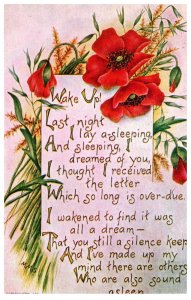 Wake Up!
Last night
I lay a-sleeping,
And sleeping, I
dreamed of you,
I thought I received
the letter
Which so long is over-due.
I wakened to find it was
all a dream—
That you still a silence keep
And I've made up my
mind there are others
Who are also sound
asleep.